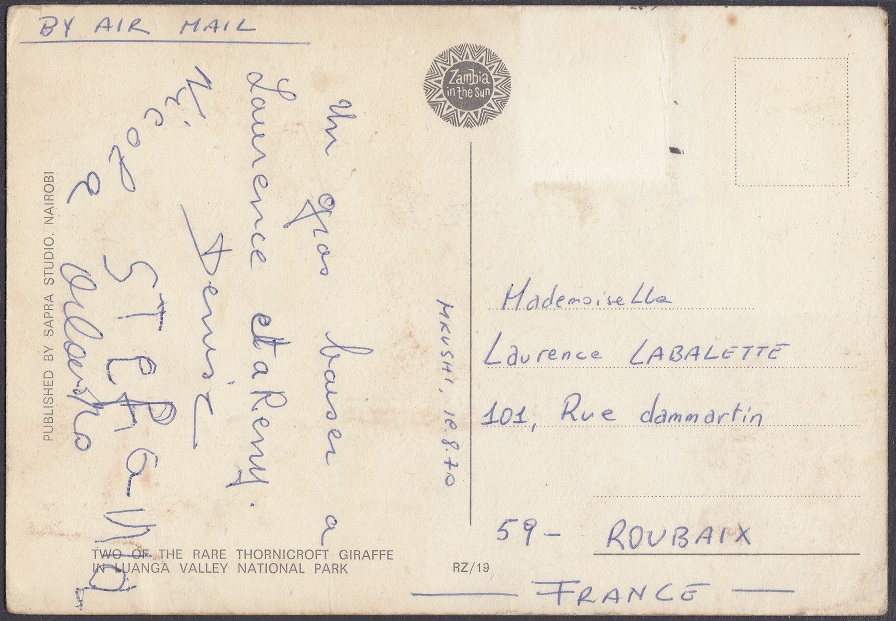 BY AIR MAIL
Zambia
in the Sun
Un gros baiser a
Laurence et a Remy.
Denise
Nicole
STEPHaNO
PUBLISHED BY SAPRA STUDIO, NAIROBI
TWO OF THE RARE THORNICROFT GIRAFFE
IN LUANGA VALLEY NATIONAL PARK
RZ/19
MKUSHI, 18.8.70
Mademoiselle
Laurence LABALETTE
101, Rue dammartin
59- ROUBAIX
FRANCE